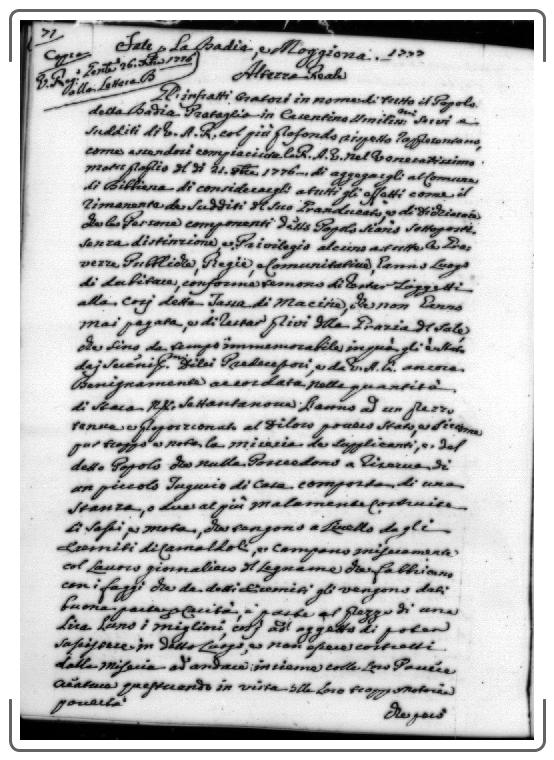 71
Sale p. La Badia, e Moggiona. 1777
Copia
Altezza Reale
Gl'infratti Oratori in nome di tutto il Popolo
della Badia Prataglia in Casentino Umilissimi Servi e
Sudditi di V. A. R. col più profondo rispetto rappresentano,
come essendosi compiaciuta la R. A. V. nel Veneratissimo
motu proprio del dì 1776 di aggregargli al Comune
di Bibbiena di considerargli a tutti gli effetti come il
rimanente de Sudditi del Suo Granducato, e di dichiarare
che le Persone componenti detto Popolo siano Sottoposte
senza distinzione e Privilegio alcuno a tutte le Gra-
vezze Pubbliche, Regie, e Comunitative, Fanno Luogo
di dubitare, conforme temono di restar Soggetti
alla così detta Tassa di Macine, che non Fanno
mai pagata, e di restar privi della Grazia del Sale
che sino da tempo immemorabile in quà gli è Stato
dai Predecessori, e da V. A. R. ancora
Benignamente accordata nelle quantità
di Staia Settantanove l'anno ad un prezzo
tenue e proporzionato al di loro povero Stato, e siccome
pur troppo è nota la miseria de Supplicanti, e del
detto Popolo che nulla Possedono a riserva di
un piccolo Tugurio di Casa composta di una
Stanza, o due al più malamente Costruite
di Sassi, e mota, che tengono a Livello dagli
Eremiti di Camaldoli, e campano miseramente
col Lavoro giornaliero del Legname che Fabbricano
con i faggi che da detti Eremiti gli vengono dati
buona parte p. Carità, e parte al prezzo di una
Lira l'uno i migliori, così ad oggetto di poter
Sussistere in detto Luogo, e non essere costretti
dalla miseria ad andare insieme colle Loro Povere
Creature in vista della Loro troppo notoria
povertà
che però